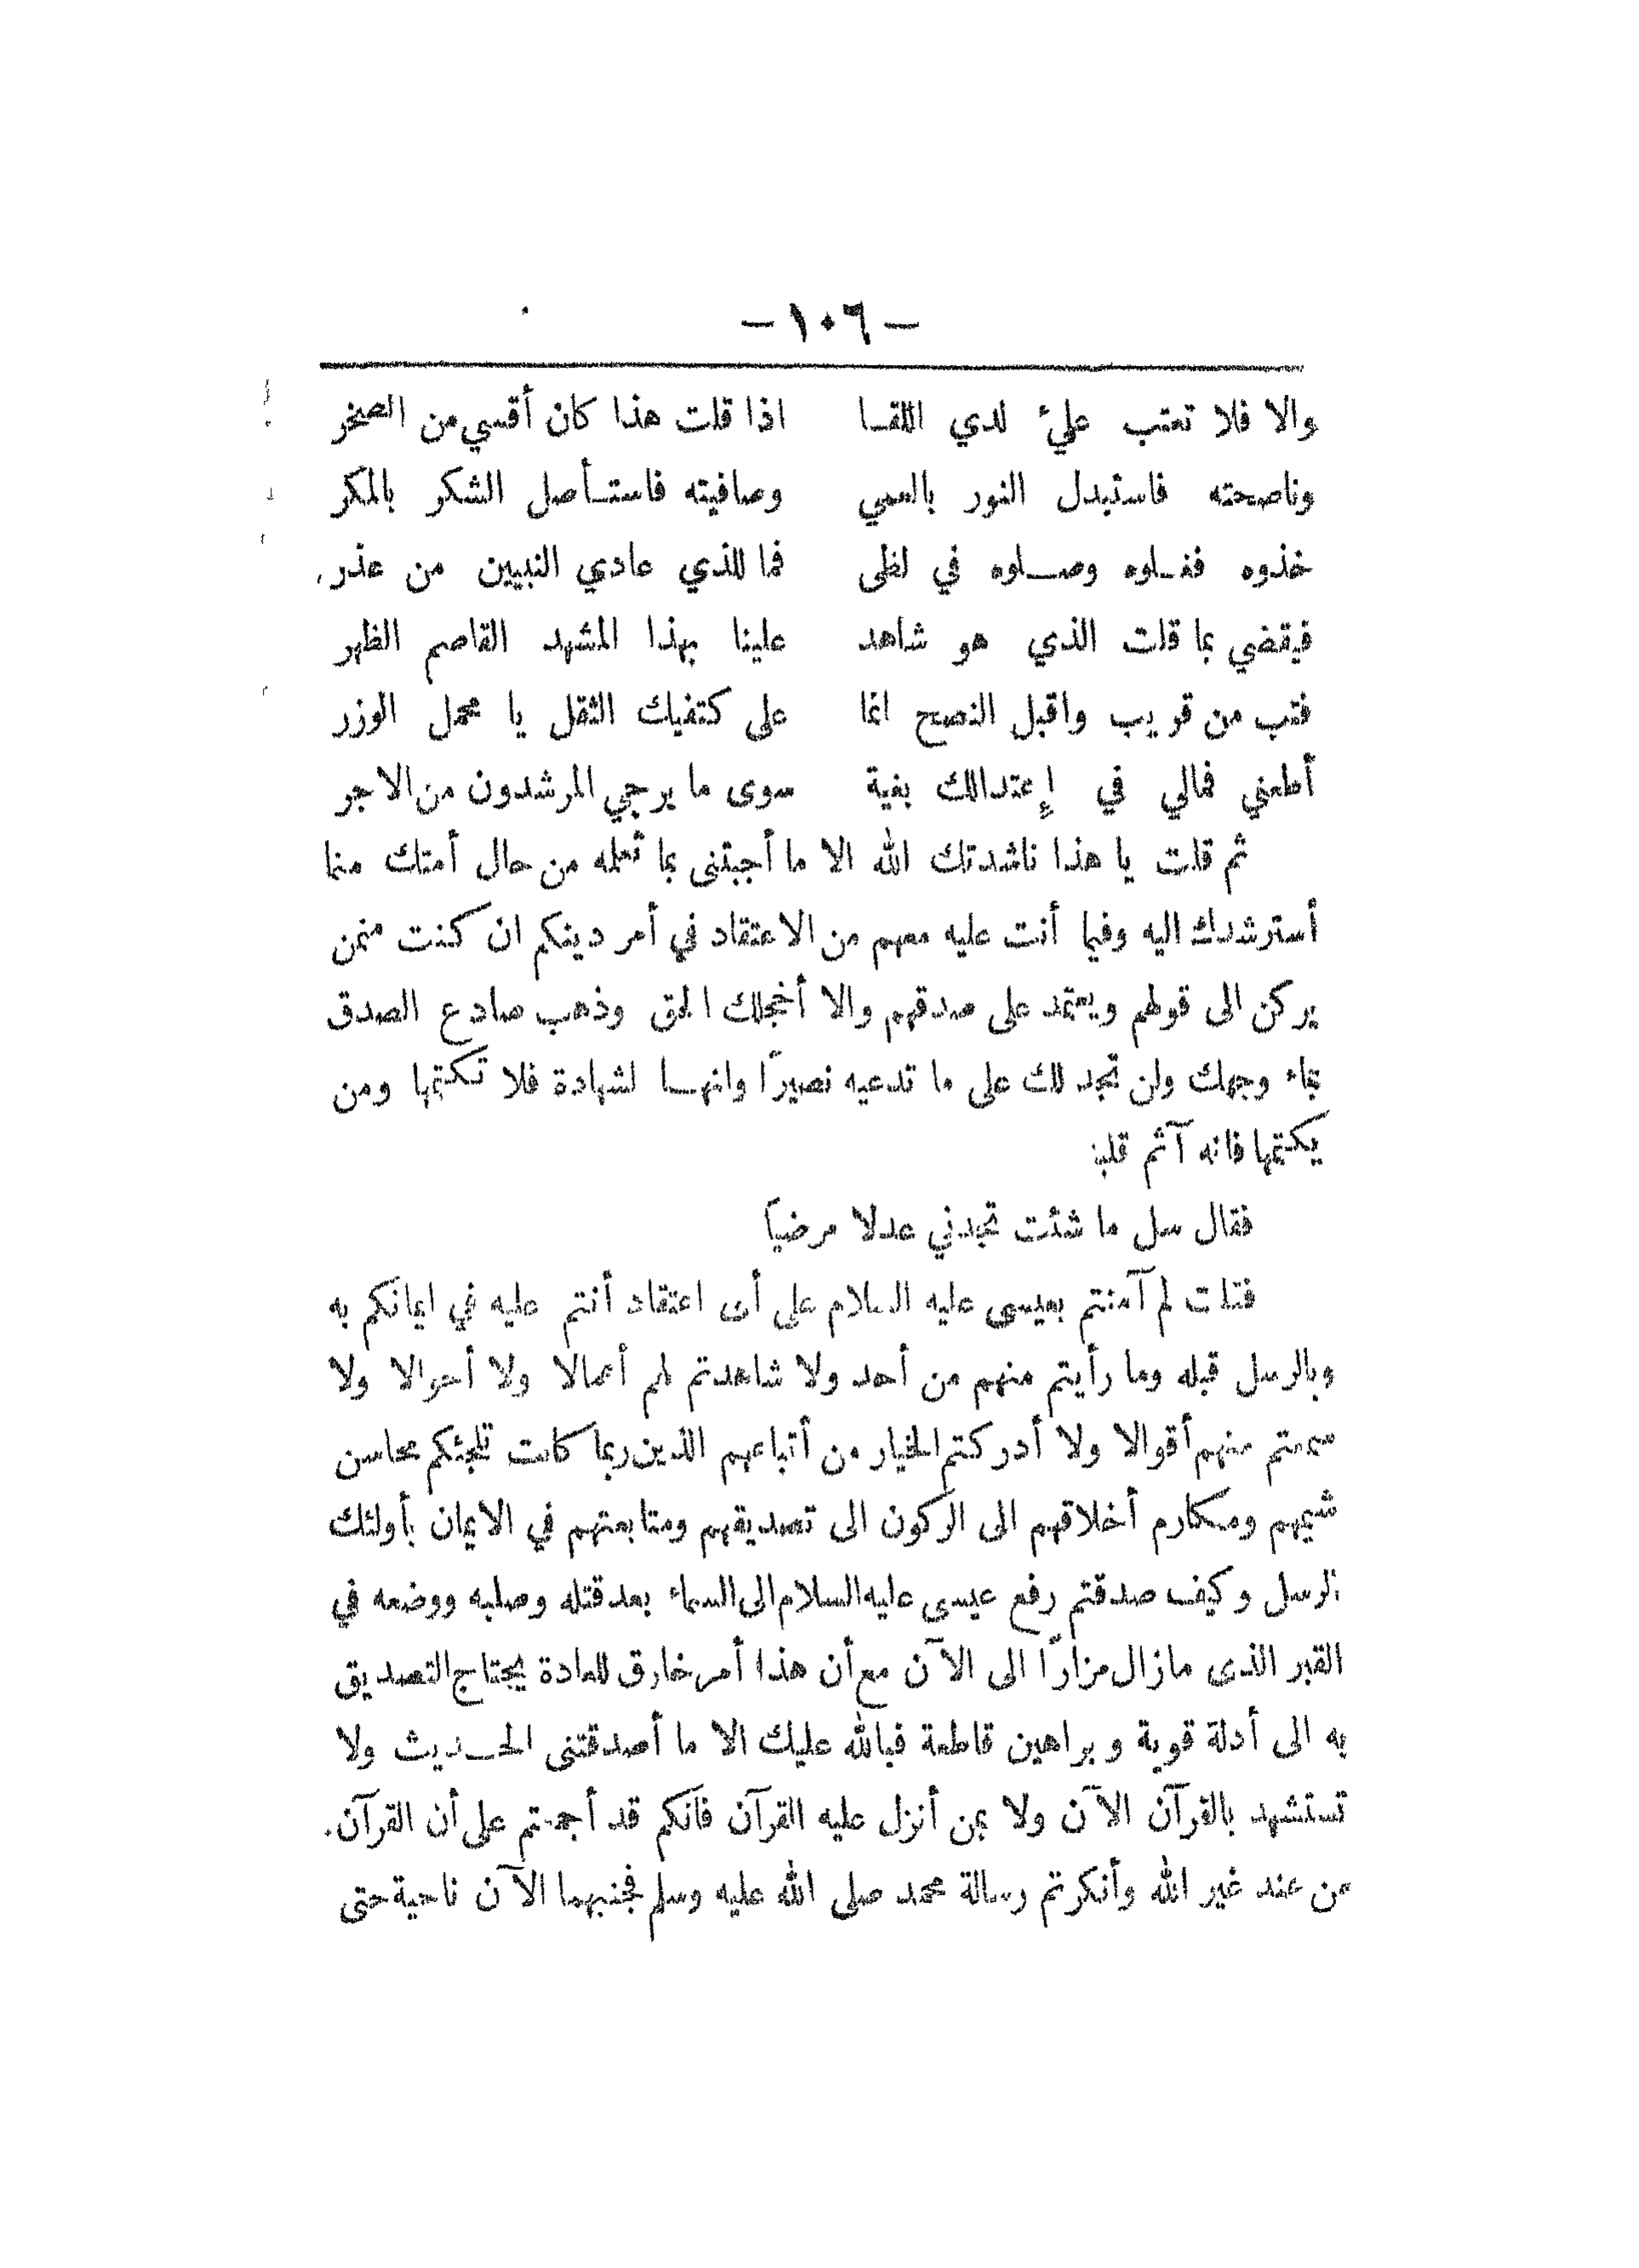 — ١٠٦ —
والا فلا تعتب عليّ لدي اللقا اذا قلت هذا كان أقسي من الصخر
وناصحته فاستبدل النور بالعمي وصافيته فاستأصل الشكر بالمكر
خذوه فغلوه وصلوه في لظى فما للذي عادي النبيين من عذر
فيقضي بما قلت الذي هو شاهد علينا بهذا المشهد القاصم الظهر
فتب من قريب واقبل النصح انما على كتفيك الثقل يا محمل الوزر
أطعني فمالي في إعتدالك بغية سوى ما يرجي المرشدون من الاجر
ثم قلت يا هذا ناشدتك الله الا ما أجبتنى بما تعلمه من حال أمتك منما
أسترشدك اليه وفيما أنت عليه معهم من الاعتقاد في أمر دينكم ان كنت ممن
يركن الى قولهم ويعتمد على صدقهم والا أخجلك الحق وذهب صادع الصدق
بماء وجهك ولن تجد لك على ما تدعيه نصيرًا وانها لشهادة فلا تكتمها ومن
يكتمها فانه آثم قلبه
فقال سل ما شئت تجدني عدلا مرضيًا
فقلت لم آمنتم بعيسى عليه السلام على أى اعتقاد أنتم عليه في ايمانكم به
وبالرسل قبله وما رأيتم منهم من أحد ولا شاهدتم لهم أعمالا ولا أحوالا ولا
سمعتم منهم أقوالا ولا أدركتم الخيار من أتباعهم الذين ربما كانت تلجئكم محاسن
شيمهم ومكارم أخلاقهم الى الركون الى تصديقهم ومتابعتهم في الايمان بأولئك
الرسل وكيف صدقتم رفع عيسى عليه السلام الى السماء بعد قتله وصلبه ووضعه في
القبر الذى مازال مزارًا الى الآن مع أن هذا أمر خارق للعادة يحتاج التصديق
به الى أدلة قوية وبراهين قاطعة فبالله عليك الا ما أصدقتنى الحديث ولا
تستشهد بالقرآن الآن ولا بمن أنزل عليه القرآن فانكم قد أجمعتم على أن القرآن
من عند غير الله وأنكرتم رسالة محمد صلى الله عليه وسلم فجنبهما الآن ناحية حتى